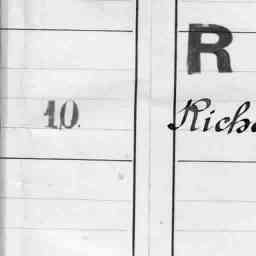 R
10.
Rich